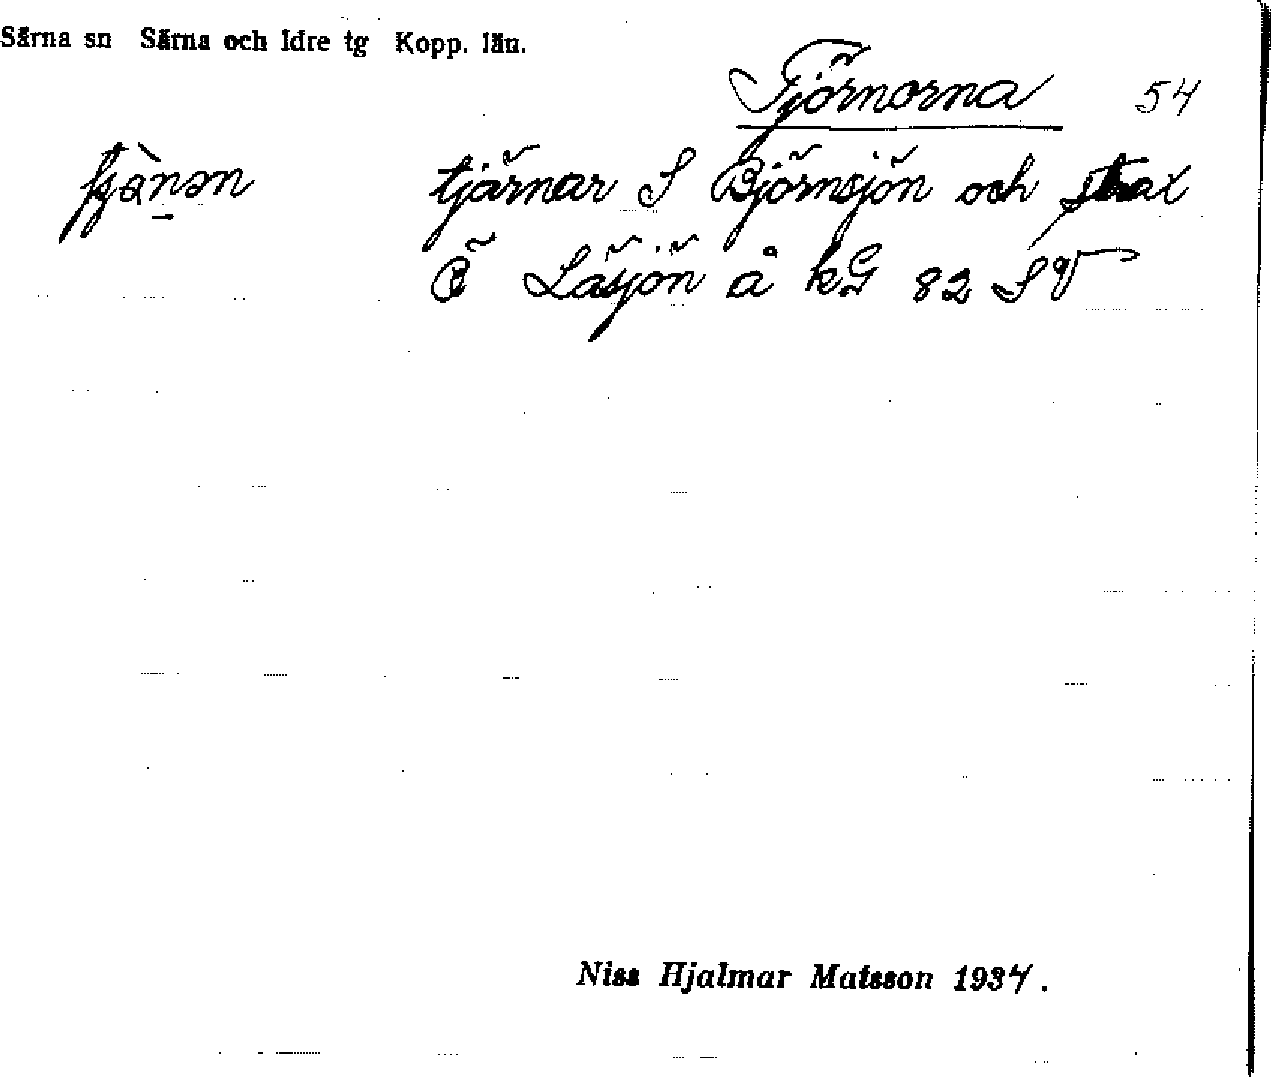 Särna sn Särna och Idre tg Kopp. län.
Tjörnorna 54
tjärnar S Björnsjön och strax
Ö Låsjön å kG 82 SV
Niss Hjalmar Matsson 1934.